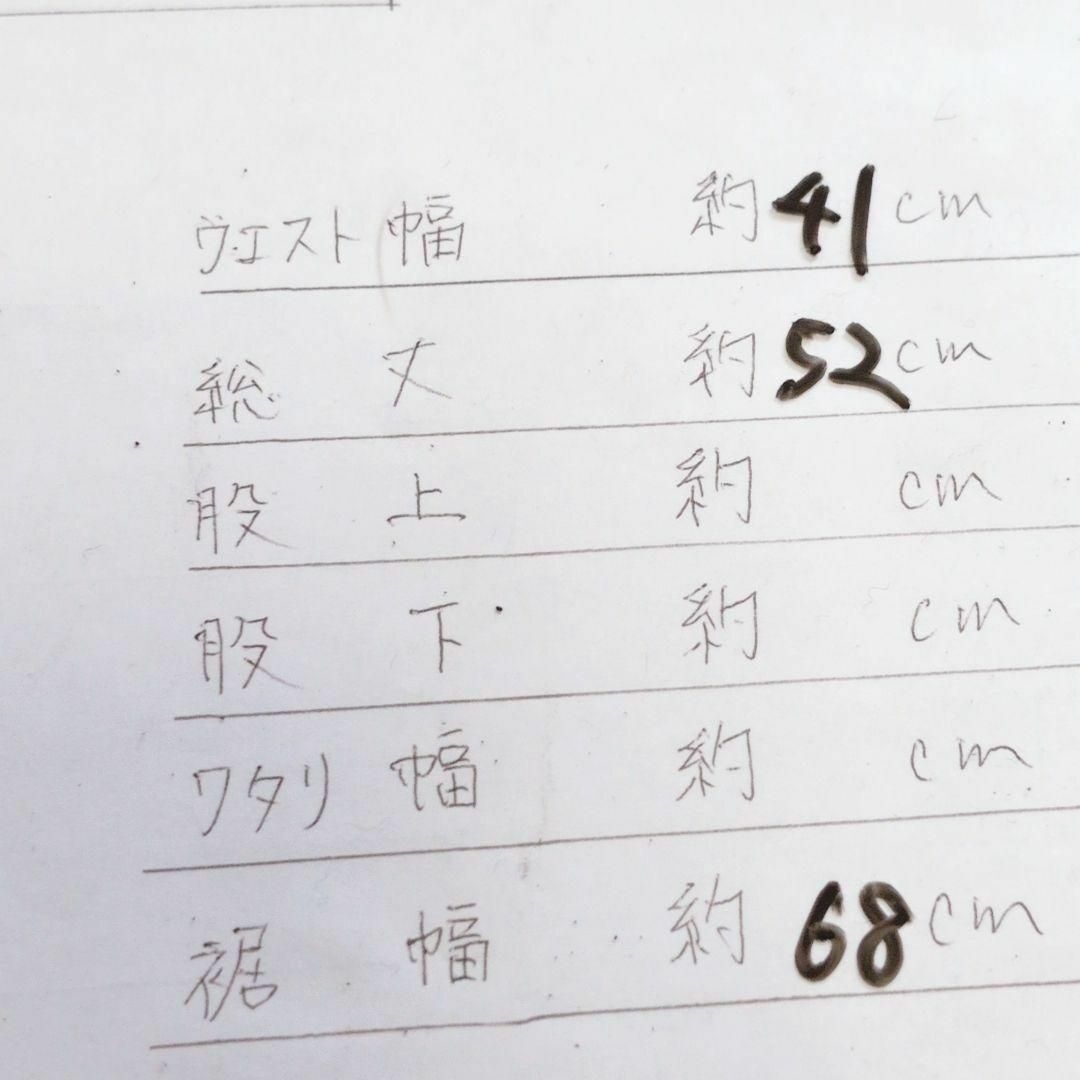 ウエスト幅 約41cm
総丈 約52cm
股上 約 cm
股下 約 cm
ワタリ幅 約 cm
裾幅 約68cm